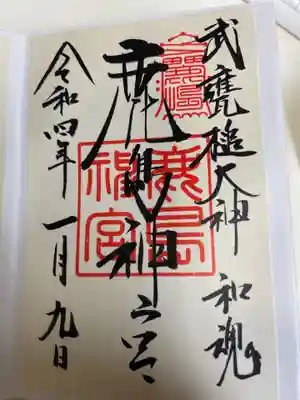 武甕槌大神 和魂
鹿島神宮
鹿島神宮
令和四年 一月 九日